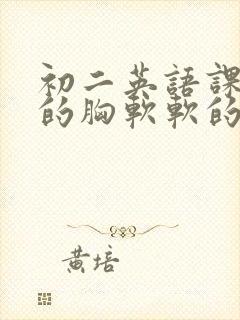 初二英語課
的胸軟軟的
黃培